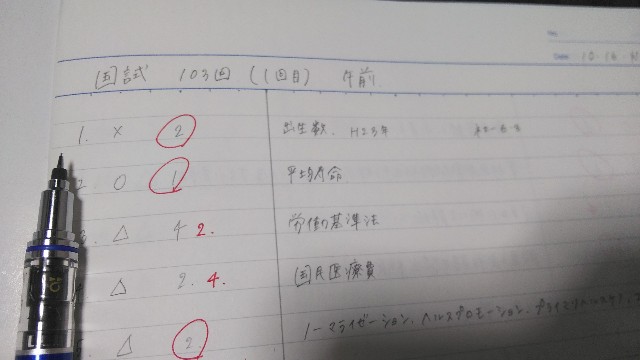 Date 10・16・
国試 103回 (1回目) 午前
1. × 2 出生数. H23年
2. ○ 1 平均寿命
3. △ 4 2. 労働基準法
△ 2. 4. 国民医療費
△ 2. ノーマライゼーション. ヘルスプロモーション. プライマリヘルスケア.